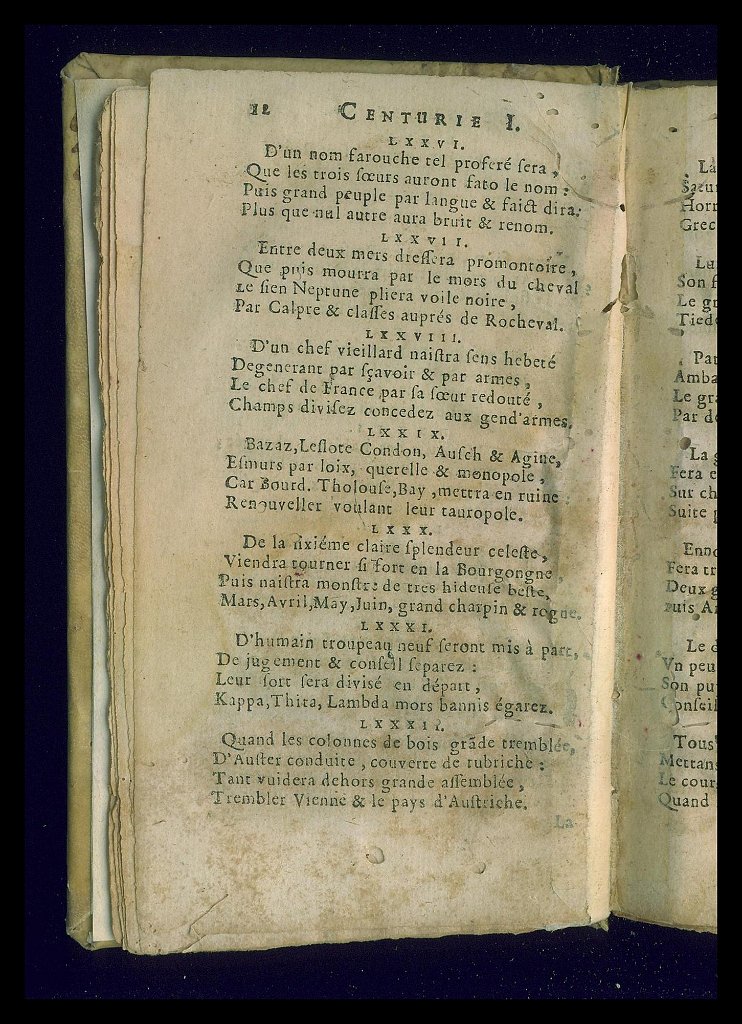 12 CENTURIE I.
LXXVI.
D'un nom farouche tel proferé sera,
Que les trois sœurs auront fato le nom:
Puis grand peuple par langue & faict dira,
Plus que nul autre aura bruit & renom.
LXXVII.
Entre deux mers dressera promontoire,
Que puis mourra par le mors du cheval:
Le sien Neptune pliera voile noire,
Par Calpre & classes auprés de Rocheval.
LXXVIII.
D'un chef vieillard naistra sens hebeté
Degenerant par sçavoir & par armes,
Le chef de France par sa sœur redouté,
Champs divisez concedez aux gend'armes.
LXXIX.
Bazaz, Lestote Condon, Ausch & Agine,
Esmurs par loix, querelle & monopole,
Car Bourd. Tholouse, Bay, mettra en ruine:
Renouveller voulant leur tauropole.
LXXX.
De la sixiéme claire splendeur celeste,
Viendra tourner si fort en la Bourgongne,
Puis naistra monstre de tres hideuse beste,
Mars, Avril, May, Juin, grand charpin & rogne.
LXXXI.
D'humain troupeau neuf seront mis à part,
De jugement & conseil separez:
Leur sort sera divisé en départ,
Kappa, Thita, Lambda mors bannis égarez.
LXXXII.
Quand les colonnes de bois grãde tremblée,
D'Auster conduite, couverte de rubriche:
Tant vuidera dehors grande assemblée,
Trembler Vienne & le pays d'Austriche.
La
La
Horr
Grec
Son f
Le gr
Tiede
Pat
Amba
Le gra
Par de
La g
Fera e
Sur ch
Suite g
Enno
Fera tr
Deux g
Puis A
Le d
Vn peu
Son pu
Conseil
Tous
Mettans
Le cour
Quand